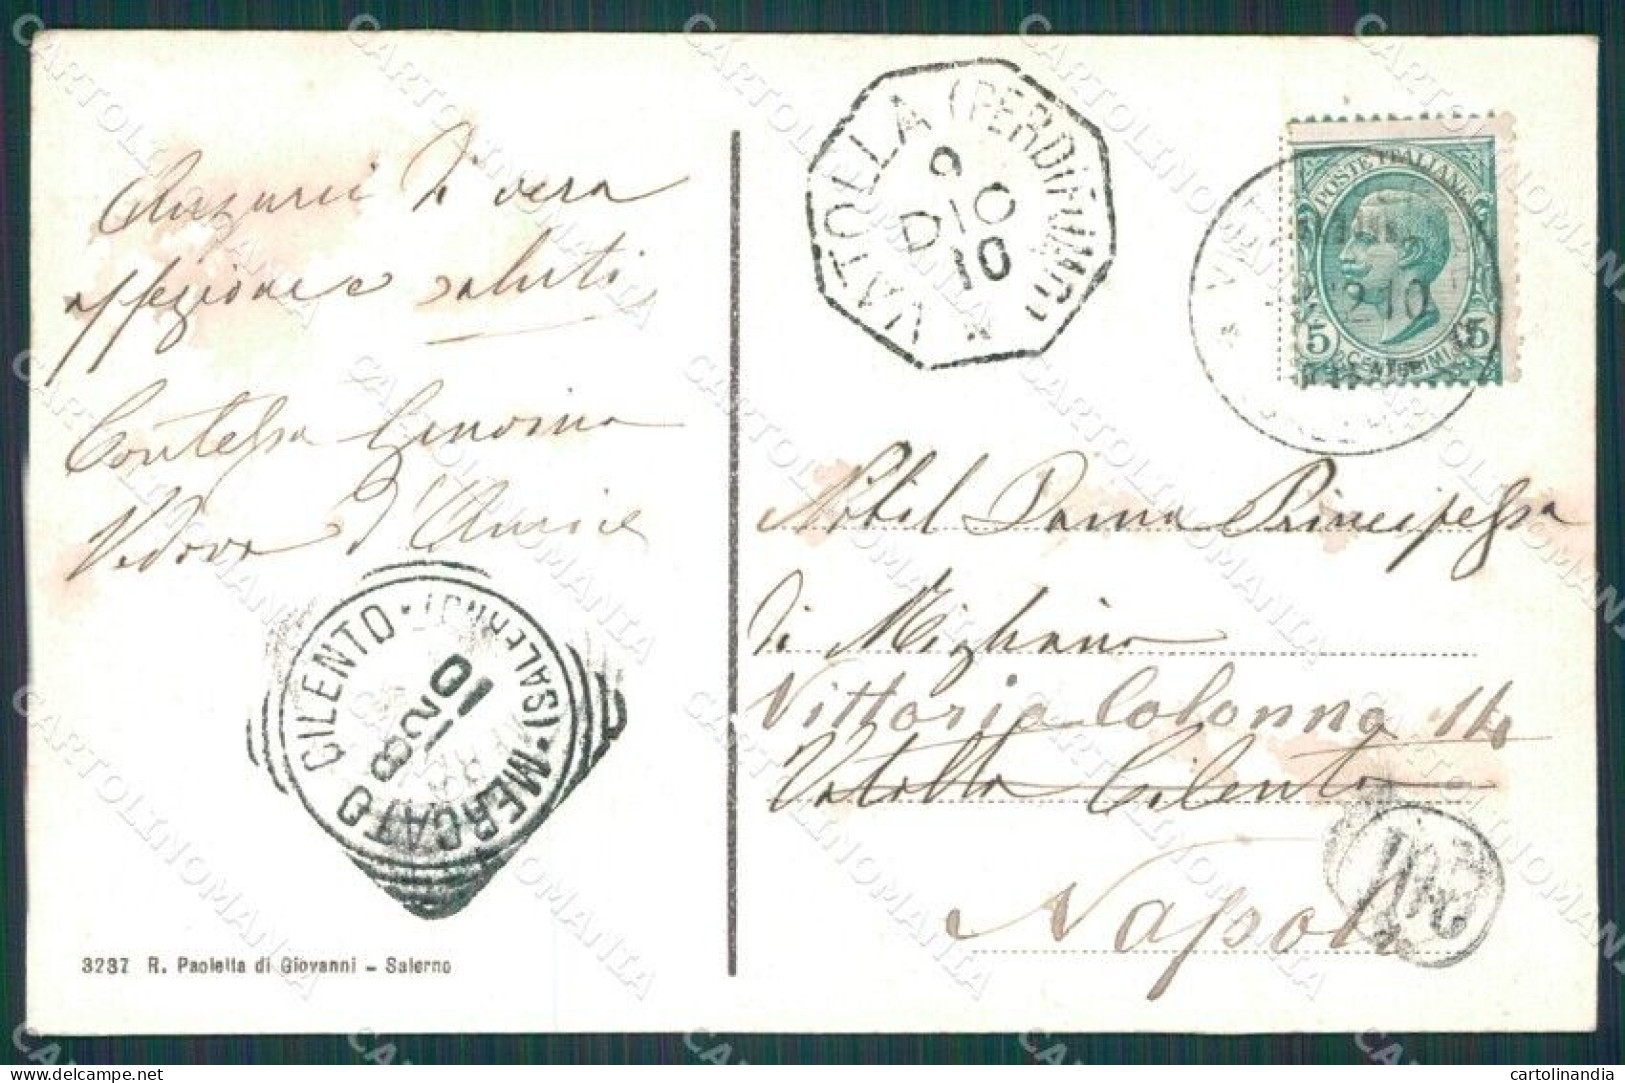 Auguri di vera
affezione e saluti
Contessa Genoina
Vedova d'Amice
CILENTO · (SALERNO) · MERCATO
28 12 10
3237 R. Paolella di Giovanni - Salerno
VATOLLA (PERDIFUMO)
9 DIC 10
POSTE ITALIANE
5 CENTESIMI 5
12·10
Nobil Dama Principessa
di Migliano
Vittoria Colonna 14
Vatolla Cilento
Napoli
CARTOLINOMANIA
cartolinandia